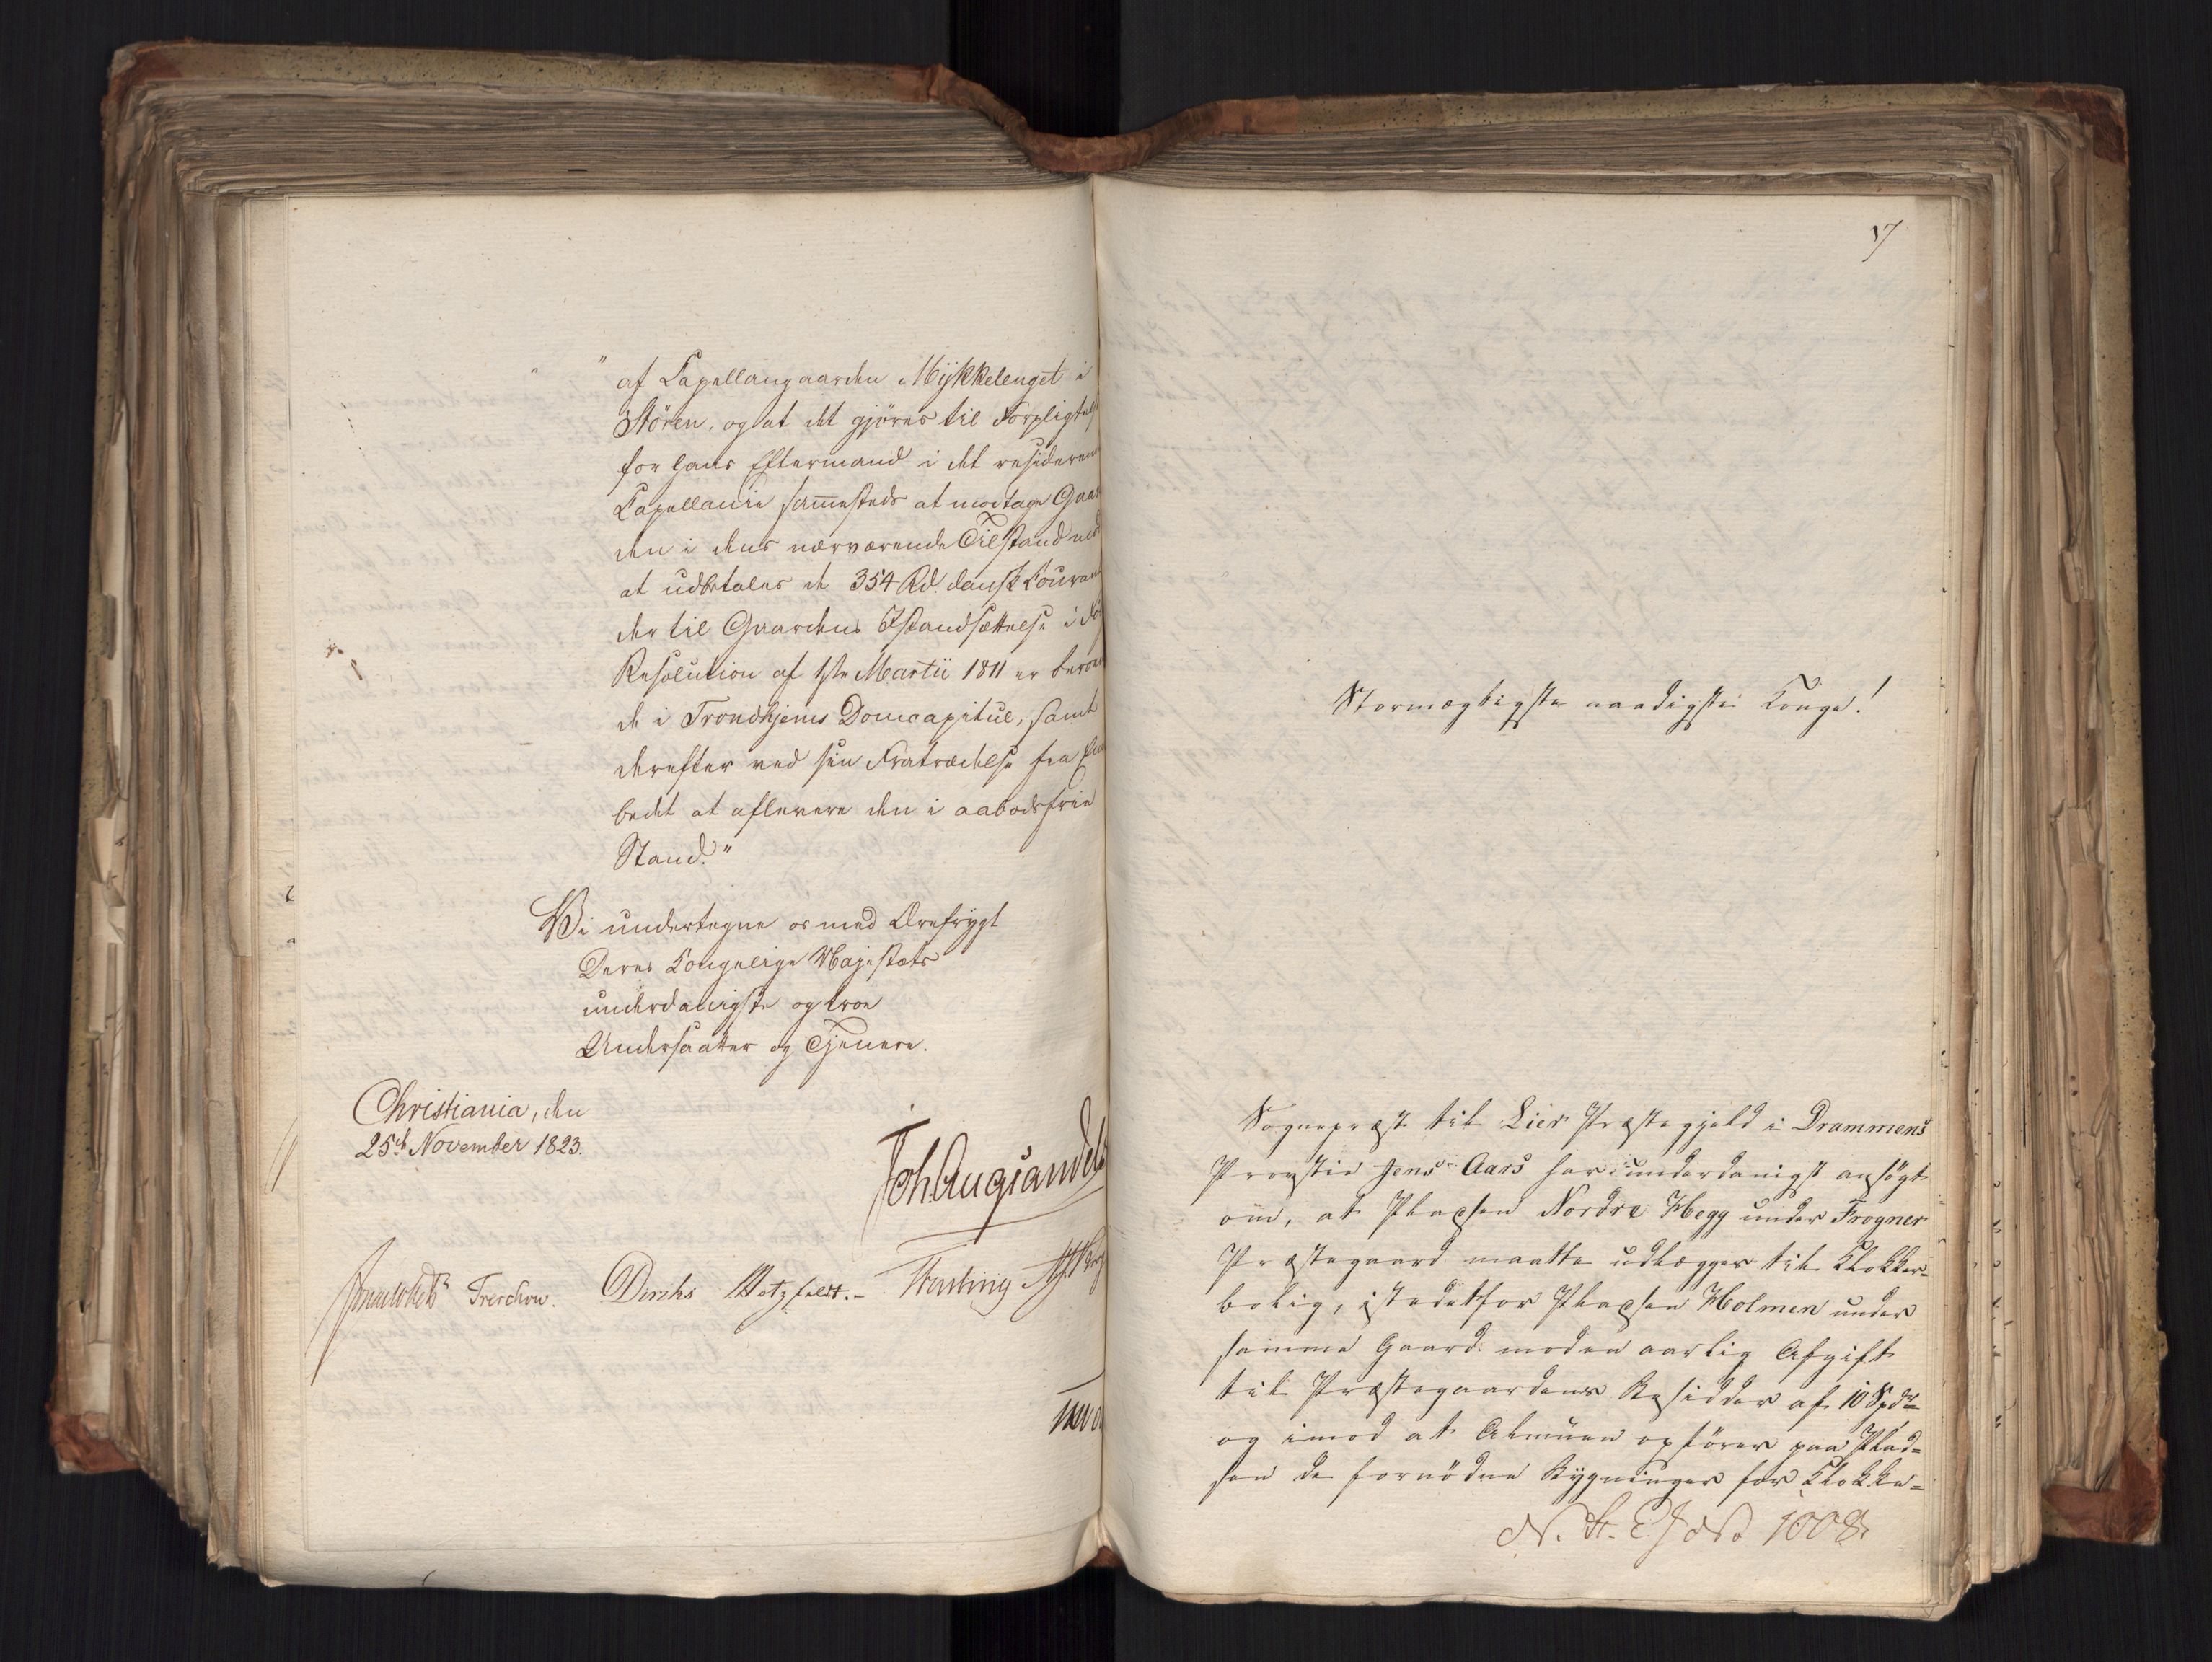 " af Capellangaarden Mykkelenget i
Stören, og at det gjöres til Forpligtels
for hans Eftermand i det residerend
Capellanie sammesteds at modtage Gaar
den i dens nærværende Tilstand ved
at udbetales de 354 Rd. dansk Courant
der til Gaardens Istandsættelse i Fölge
Resolution af 1ste Martii 1811 er beroen
de i Trondhjems Domcapitul, samt
derefter ved sin Fratrædelse fra Em
bedet at aflevere den i aabodsfrie
Stand."
Vi undertegne os med Ærefrygt
Deres Kongelige Majestæts
underdanigste og troe
Undersaatter og Tjenere.
Christiania, den
25de November 1823.
Joh. Aug. Sandels
Sommerhielm Treschow. Diriks Motzfeldt. Fasting
17
Stormægtigste naadigste Konge!
Sognepræst til Lier Præstegjeld i Drammens
Provstie Jens Aars har underdanigst ansögt
om, at Pladsen Nordre Hegg under Frogner
Præstegaard maatte udlægges til Klokker-
bolig, istedetfor Pladsen Holmen under
samme Gaard mod en aarlig Afgift
til Præstegaardens Besidder af 10 Spdr
og imod at Almuen opförer paa Plad-
sen de fornödne Bygninger for Klokke-
1008